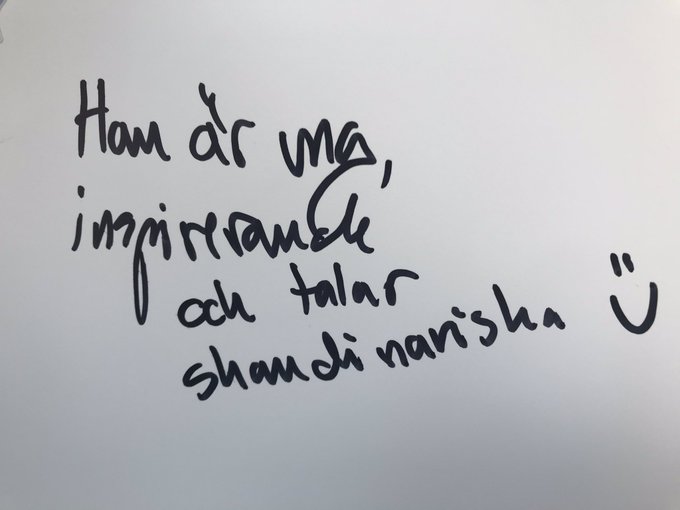 Han är ung,
inspirerande
och talar
skandinaviska ü